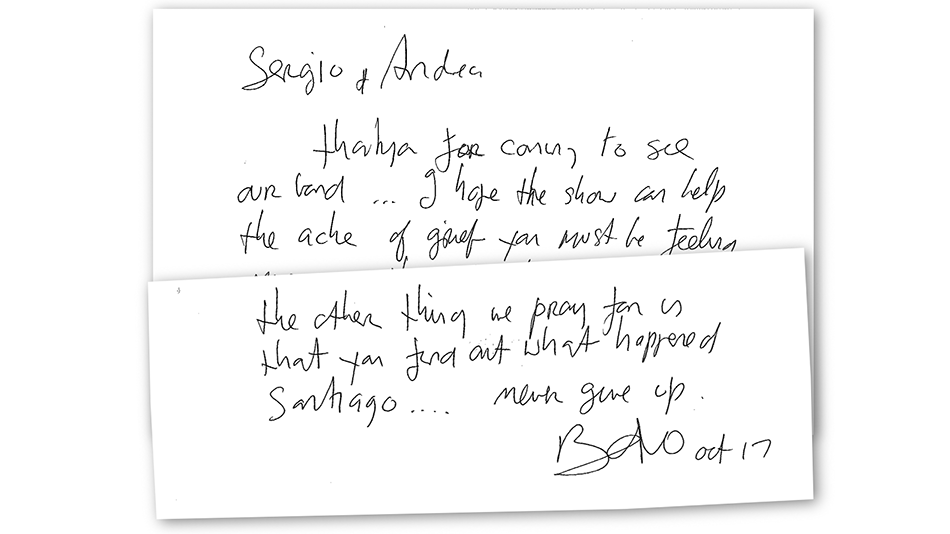 Sergio & Andrea
thankyou for coming to see
our band ... I hope the show can help
the ache of grief you must be feeling
the other thing we pray for is
that you find out what happened
Santiago .... never give up.
BONO oct 17